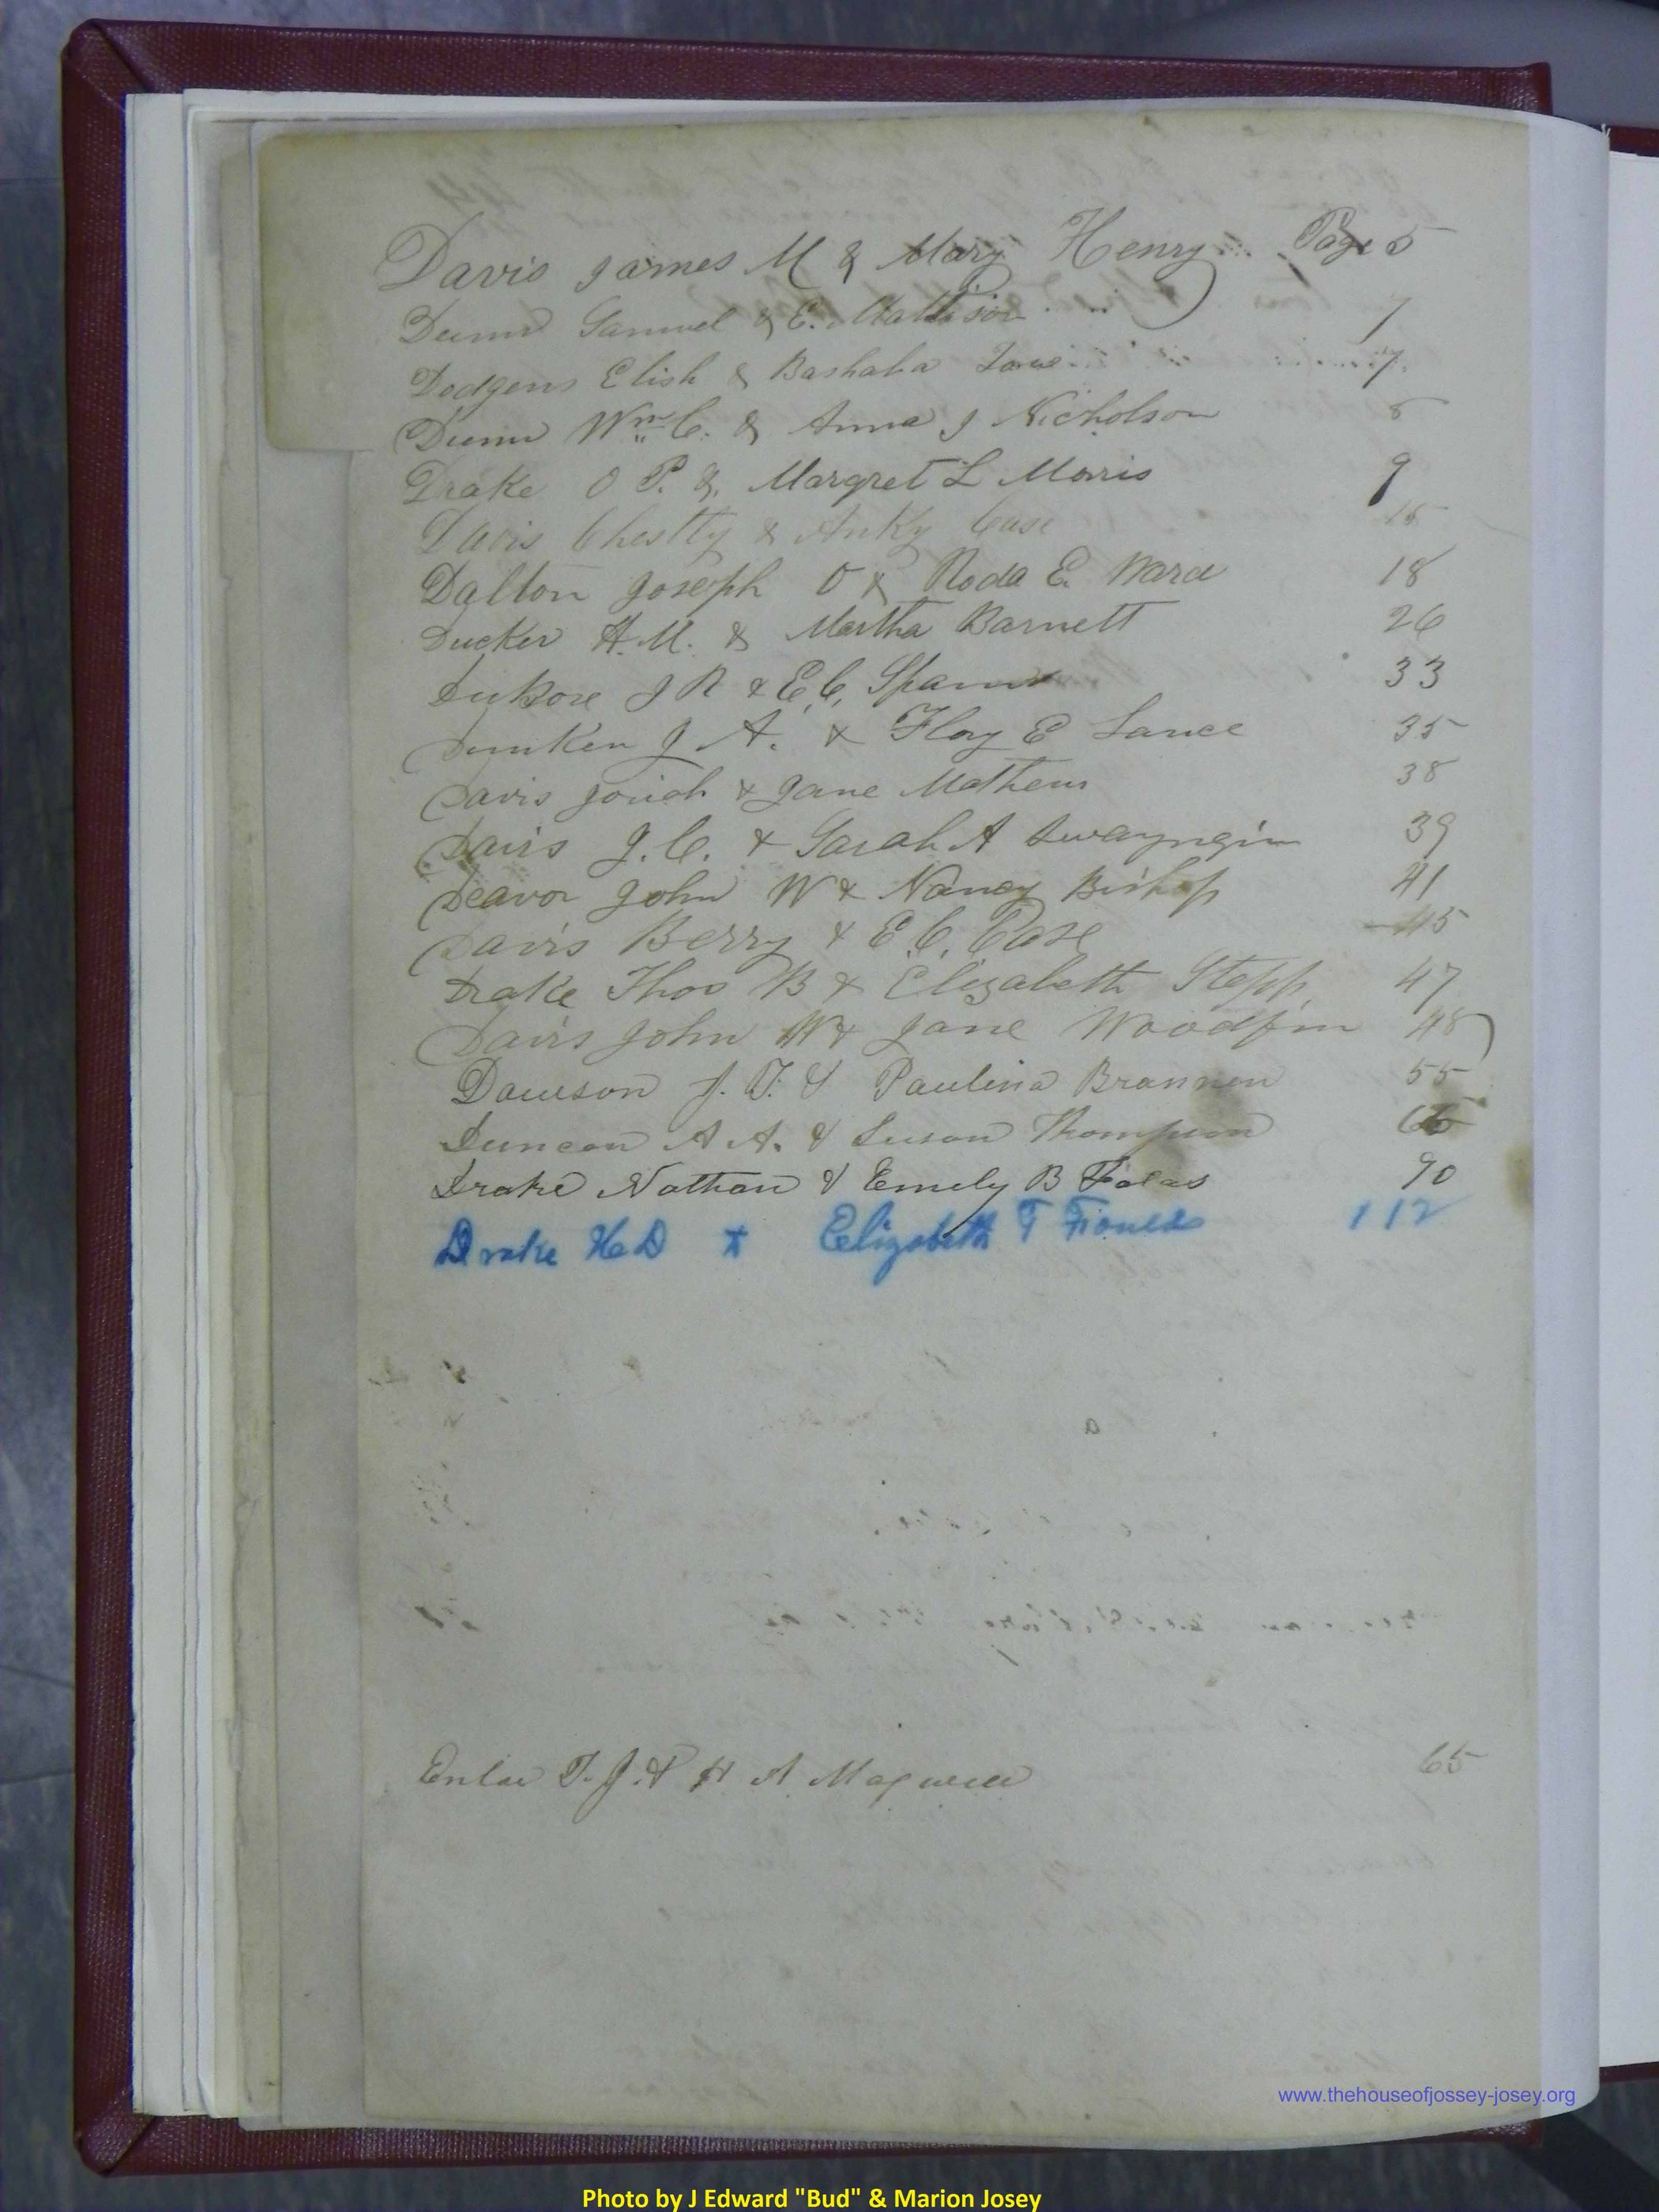 Davis James M & Mary Henry Page 5
Dunn Samuel & E. Mattison 7
Dodgens Elish & Bashaba 7
Dunn Wm C. & Anna J Nicholson 8
Drake O P. & Margret L Morris 9
Davis Chestly & Anky Case 15
Dalton Joseph O & Roda E. Ward 18
Ducker H. M. & Martha Barnett 26
DuBose J R & E. C. Spann 33
J A. & Floy E Lance 35
Davis Josiah & Jane Mathews 38
Davis J. C. & Sarah A Swayngim 39
Deavor John W & Nancy Bishop 41
Davis Berry & E. C. Case 45
Drake Thos B & Elizabeth Stepp 47
Davis John W & Jane Woodfin 48
Dawson J. T. & Paulina Brannon 55
Duncan A A. & Susan Thompson
Drake Nathan & Emely B 90
Drake H D & Elizabeth T 112
T. J. & H A. 65
www.thehouseofjossey-josey.org
Photo by J Edward "Bud" & Marion Josey